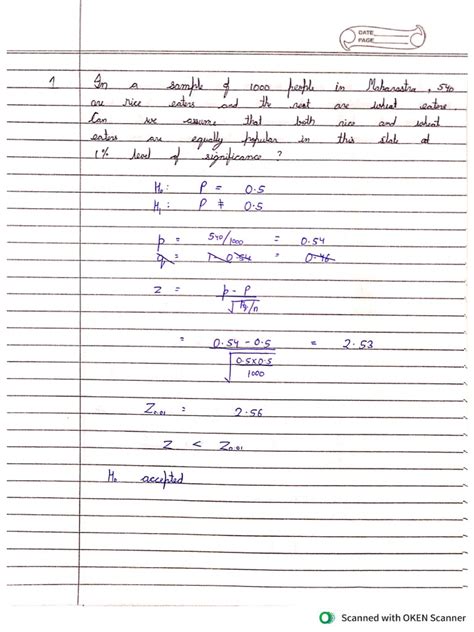 DATE
PAGE
1 In a sample of 1000 people in Maharastra, 540
are rice eaters and the rest are wheat eaters
Can we assume that both rice and wheat
eaters are equally popular in this state at
1% level of significance ?
H₀: P = 0.5
H₁: P ≠ 0.5
p = 540/1000 = 0.54
q = 1-0.54 = 0.46
Z = p - P / √(Pq/n)
= 0.54 - 0.5 / √(0.5x0.5/1000) = 2.53
Z0.01 = 2.56
Z < Z0.01
H₀ accepted
Scanned with OKEN Scanner